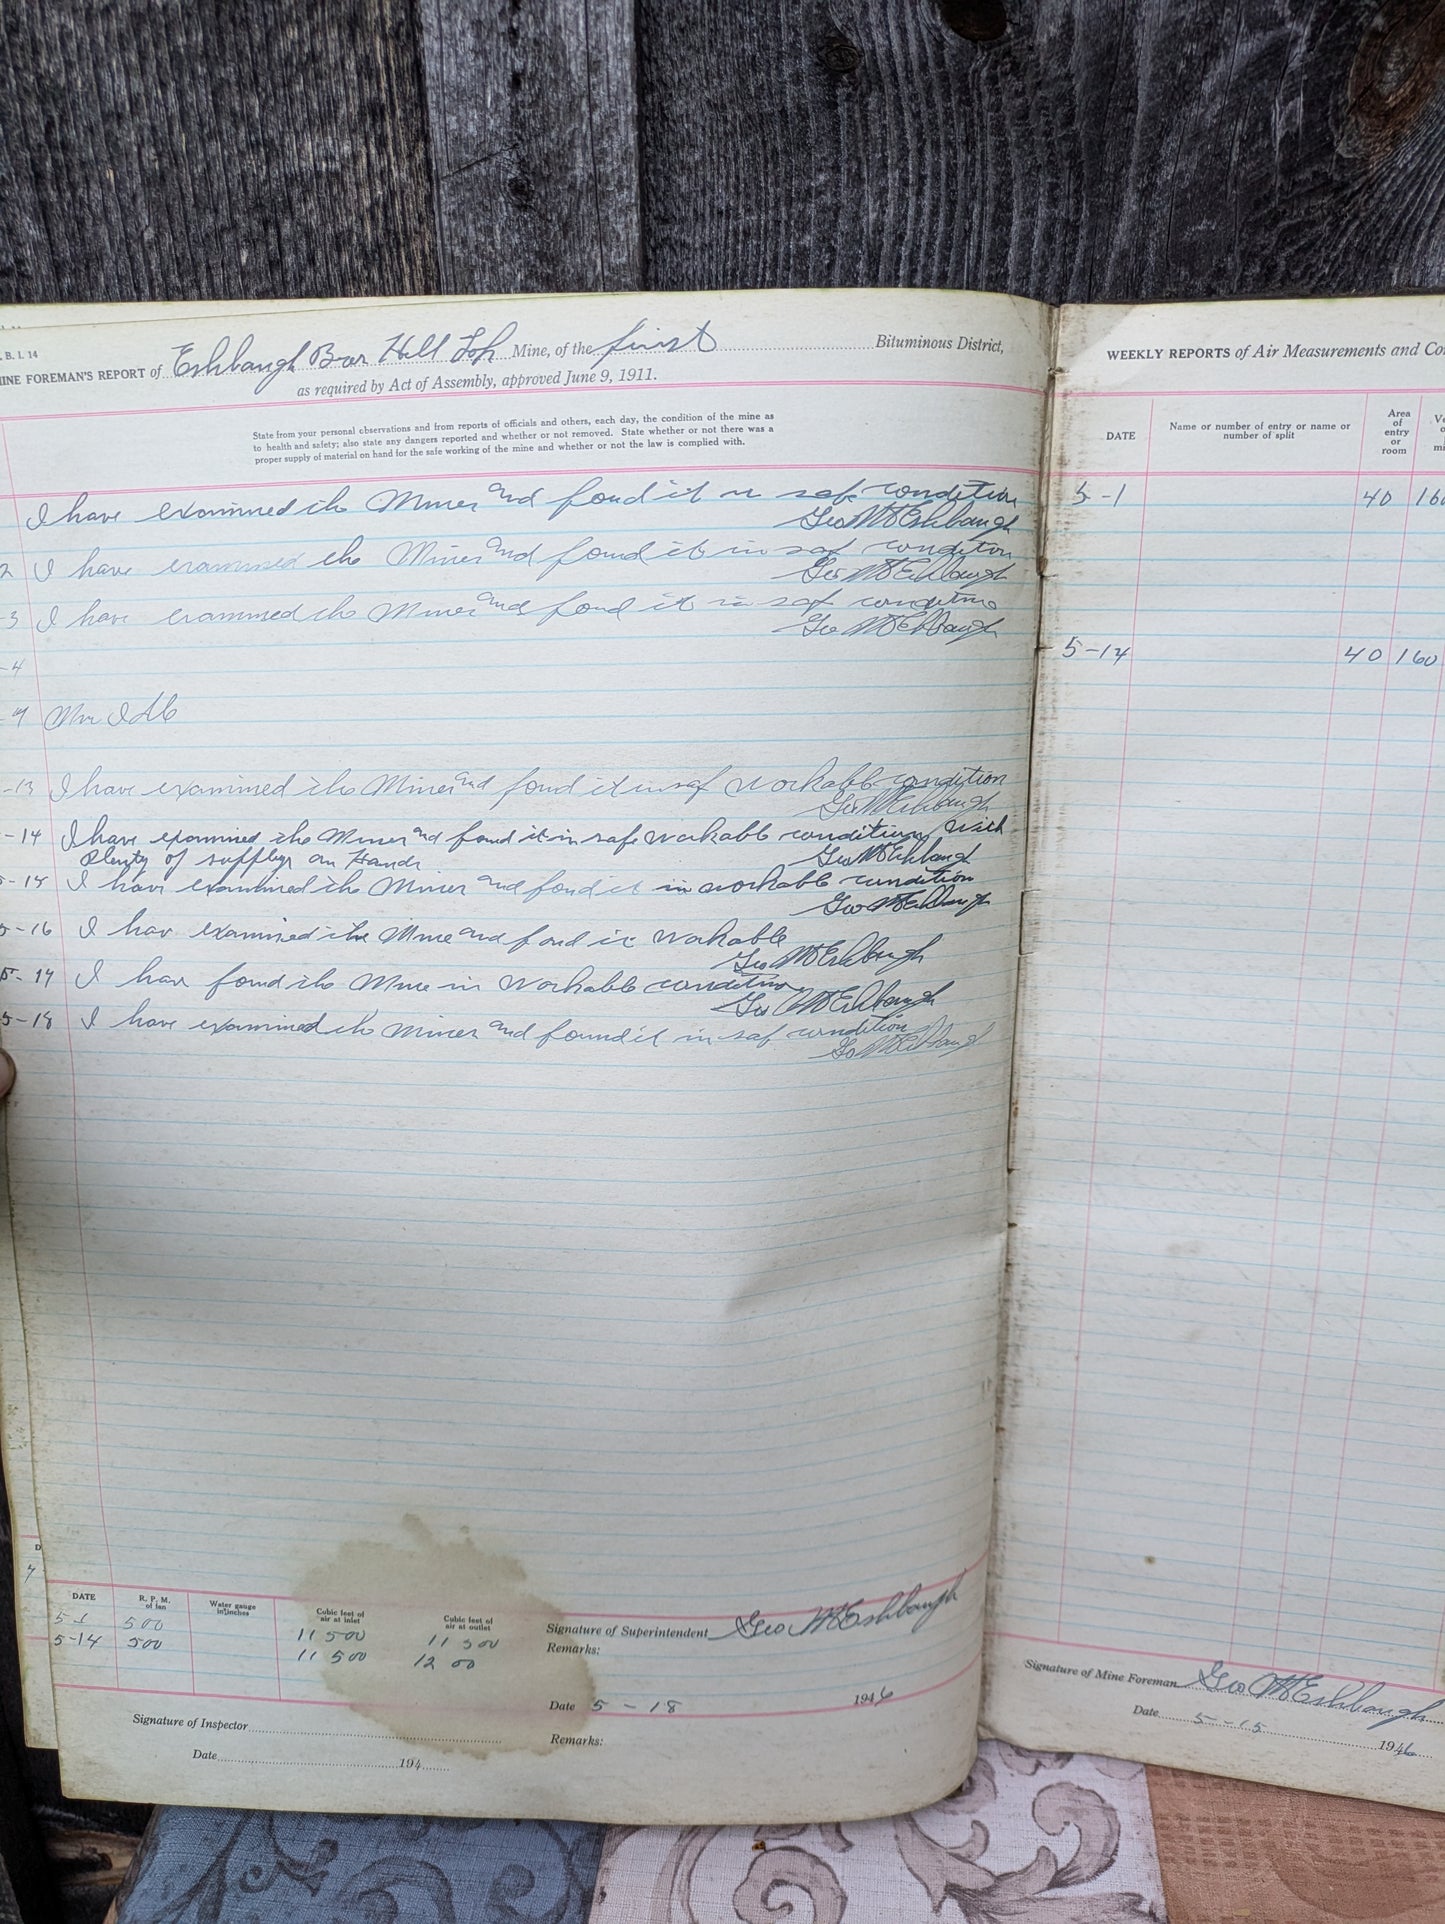 . B. I. 14
INE FOREMAN'S REPORT of Eshbaugh Hill Mine, of the first Bituminous District,
as required by Act of Assembly, approved June 9, 1911.
State from your personal observations and from reports of officials and others, each day, the condition of the mine as
to health and safety; also state any dangers reported and whether or not removed. State whether or not there was a
proper supply of material on hand for the safe working of the mine and whether or not the law is complied with.
I have examined the Mines and found it in safe condition
Geo M Eshbaugh
2 I have examined the Mines and found it in saf condition
Geo M Eshbaugh
3 I have examined the Mines and found it in saf condition
Geo M Eshbaugh
-4
Idle
-13 I have examined the Mines and fond it in saf workable condition
Geo M Eshbaugh
-14 I have examined the Mines and found it in safe workable condition with
Plenty of on Hand
Geo M Eshbaugh
5-15 I have examined the Mines and fond it in workable condition
Geo M Eshbaugh
5-16 I hav examined the Mine and fond it workable
Geo M Eshbaugh
5-17 I hav found the Mine in workable condition
Geo M Eshbaugh
5-18 I have examined the Mines and found it in saf condition
Geo M Eshbaugh
DATE R. P. M. of fan Water gauge in inches Cubic feet of air at inlet Cubic feet of air at outlet
5-1 500 11 500 11 500
5-14 500 11 500 12 00
Signature of Superintendent Geo M Eshbaugh
Remarks:
Date 5-18 1946
Signature of Inspector
Remarks:
Date 194
WEEKLY REPORTS of Air Measurements and Co
DATE
Name or number of entry or name or
number of split
Area
of
entry
or
room
5-1 40 160
5-14 40 160
Signature of Mine Foreman Geo M Eshbaugh
Date 5-15 1946